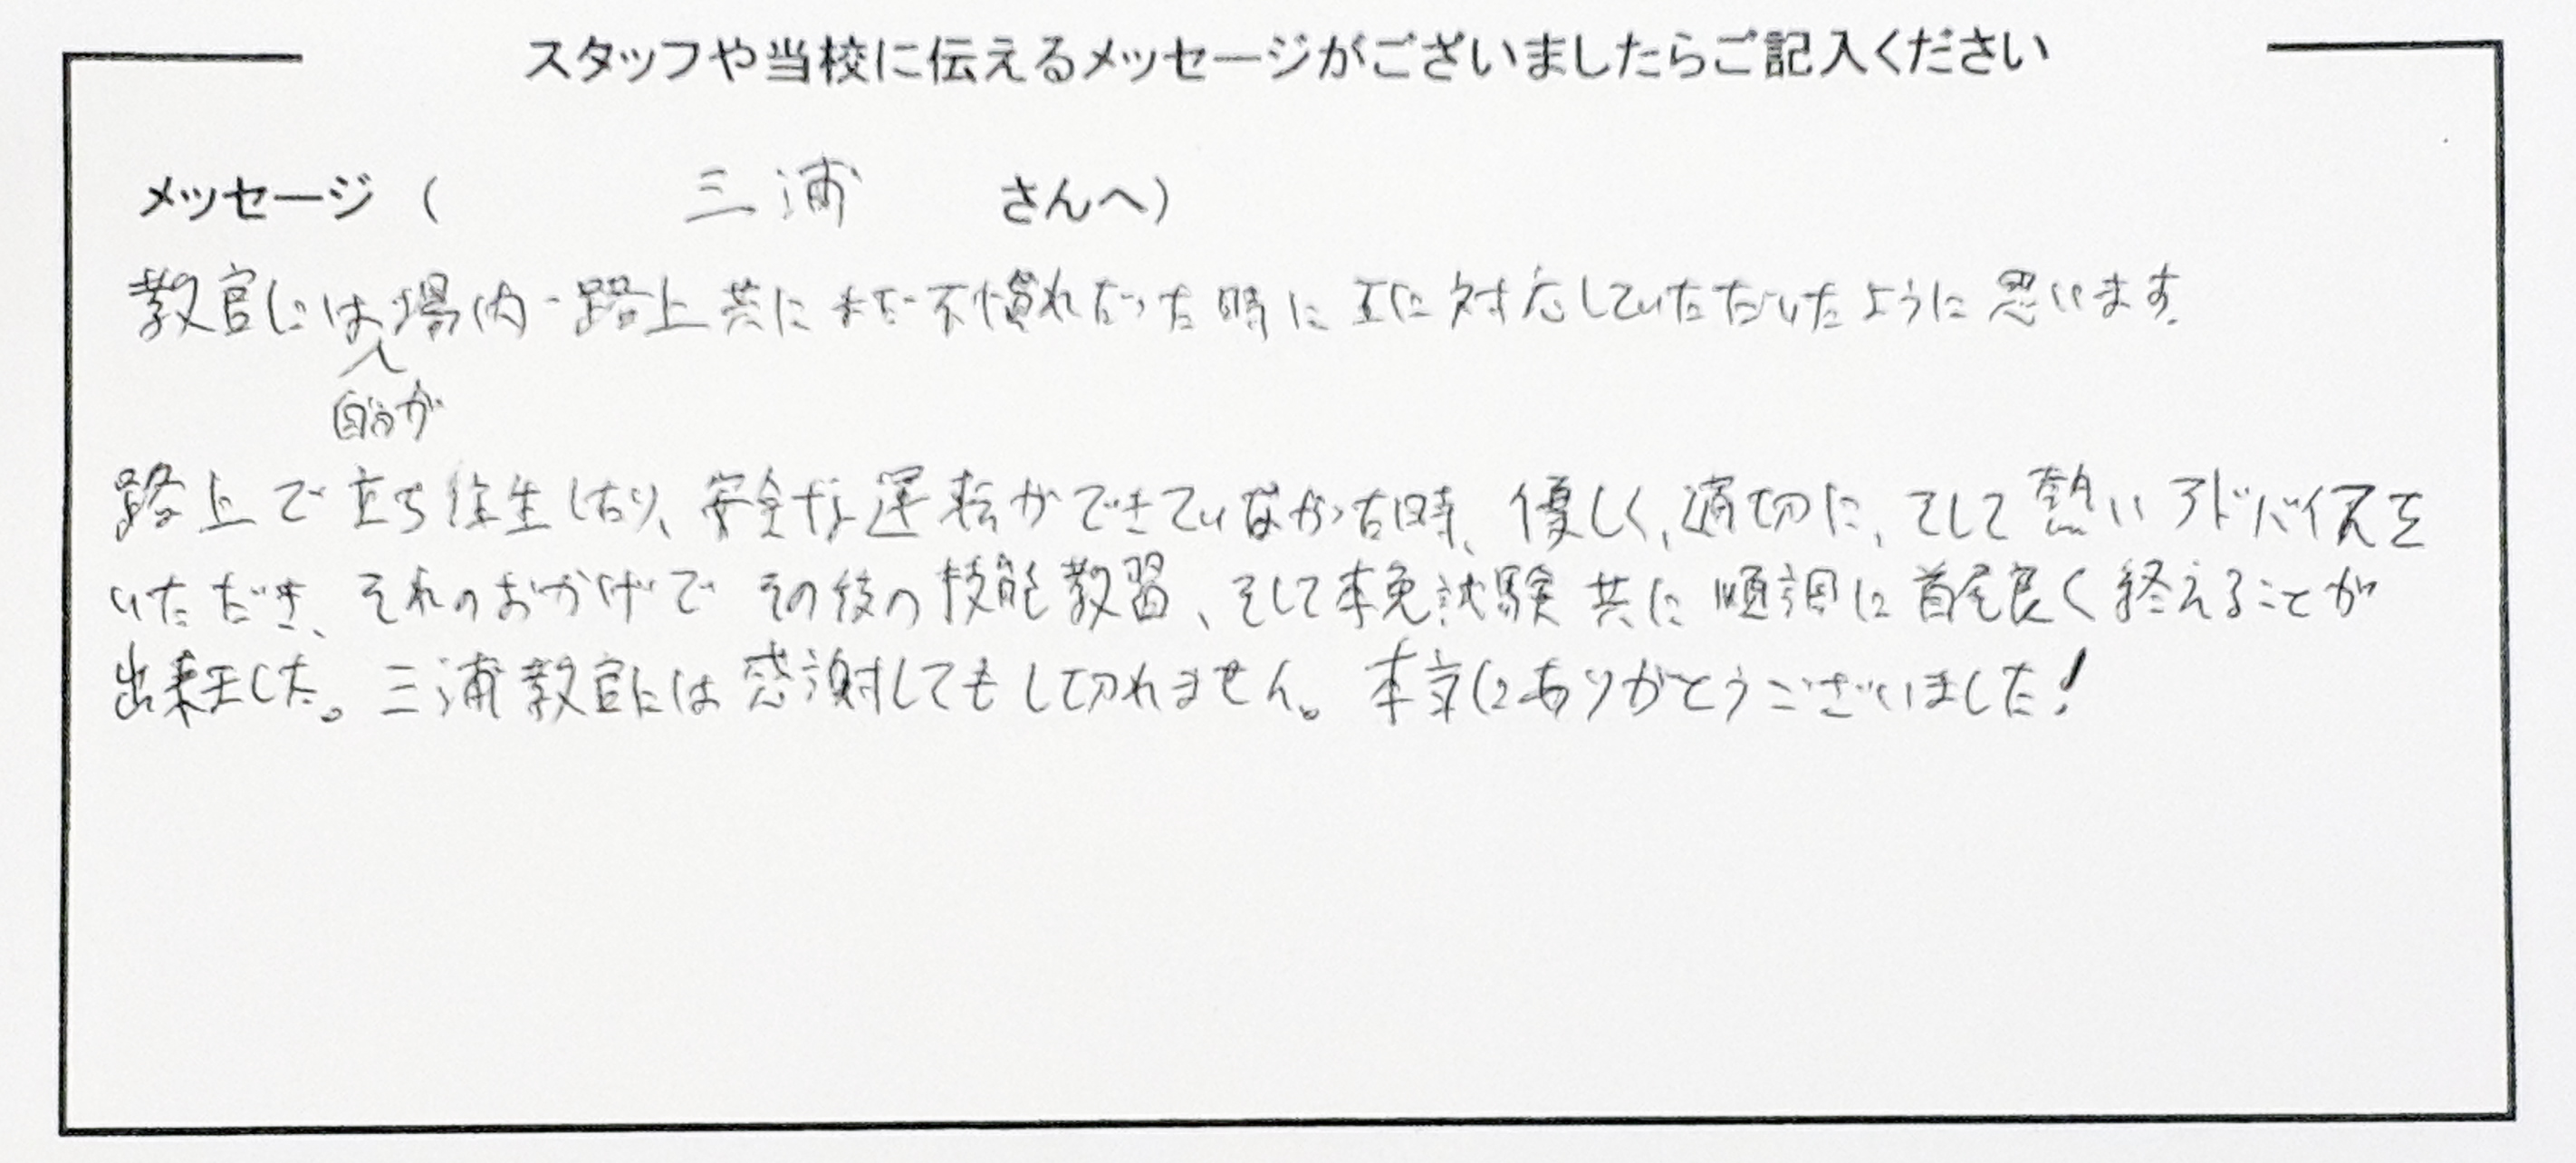 スタッフや当校に伝えるメッセージがございましたらご記入ください
メッセージ ( 三浦 さんへ)
教官には場内・路上共にまだ不慣れだった時に 対応していただいたように思います。
自分が
路上で立ち往生したり、安全な運転ができていなかった時、優しく、適切に、そして熱いアドバイスを
いただき、それのおかげでその後の技能教習、そして本免試験共に順調に首尾良く終えることが
出来ました。三浦教官には感謝してもし切れません。本当にありがとうございました!